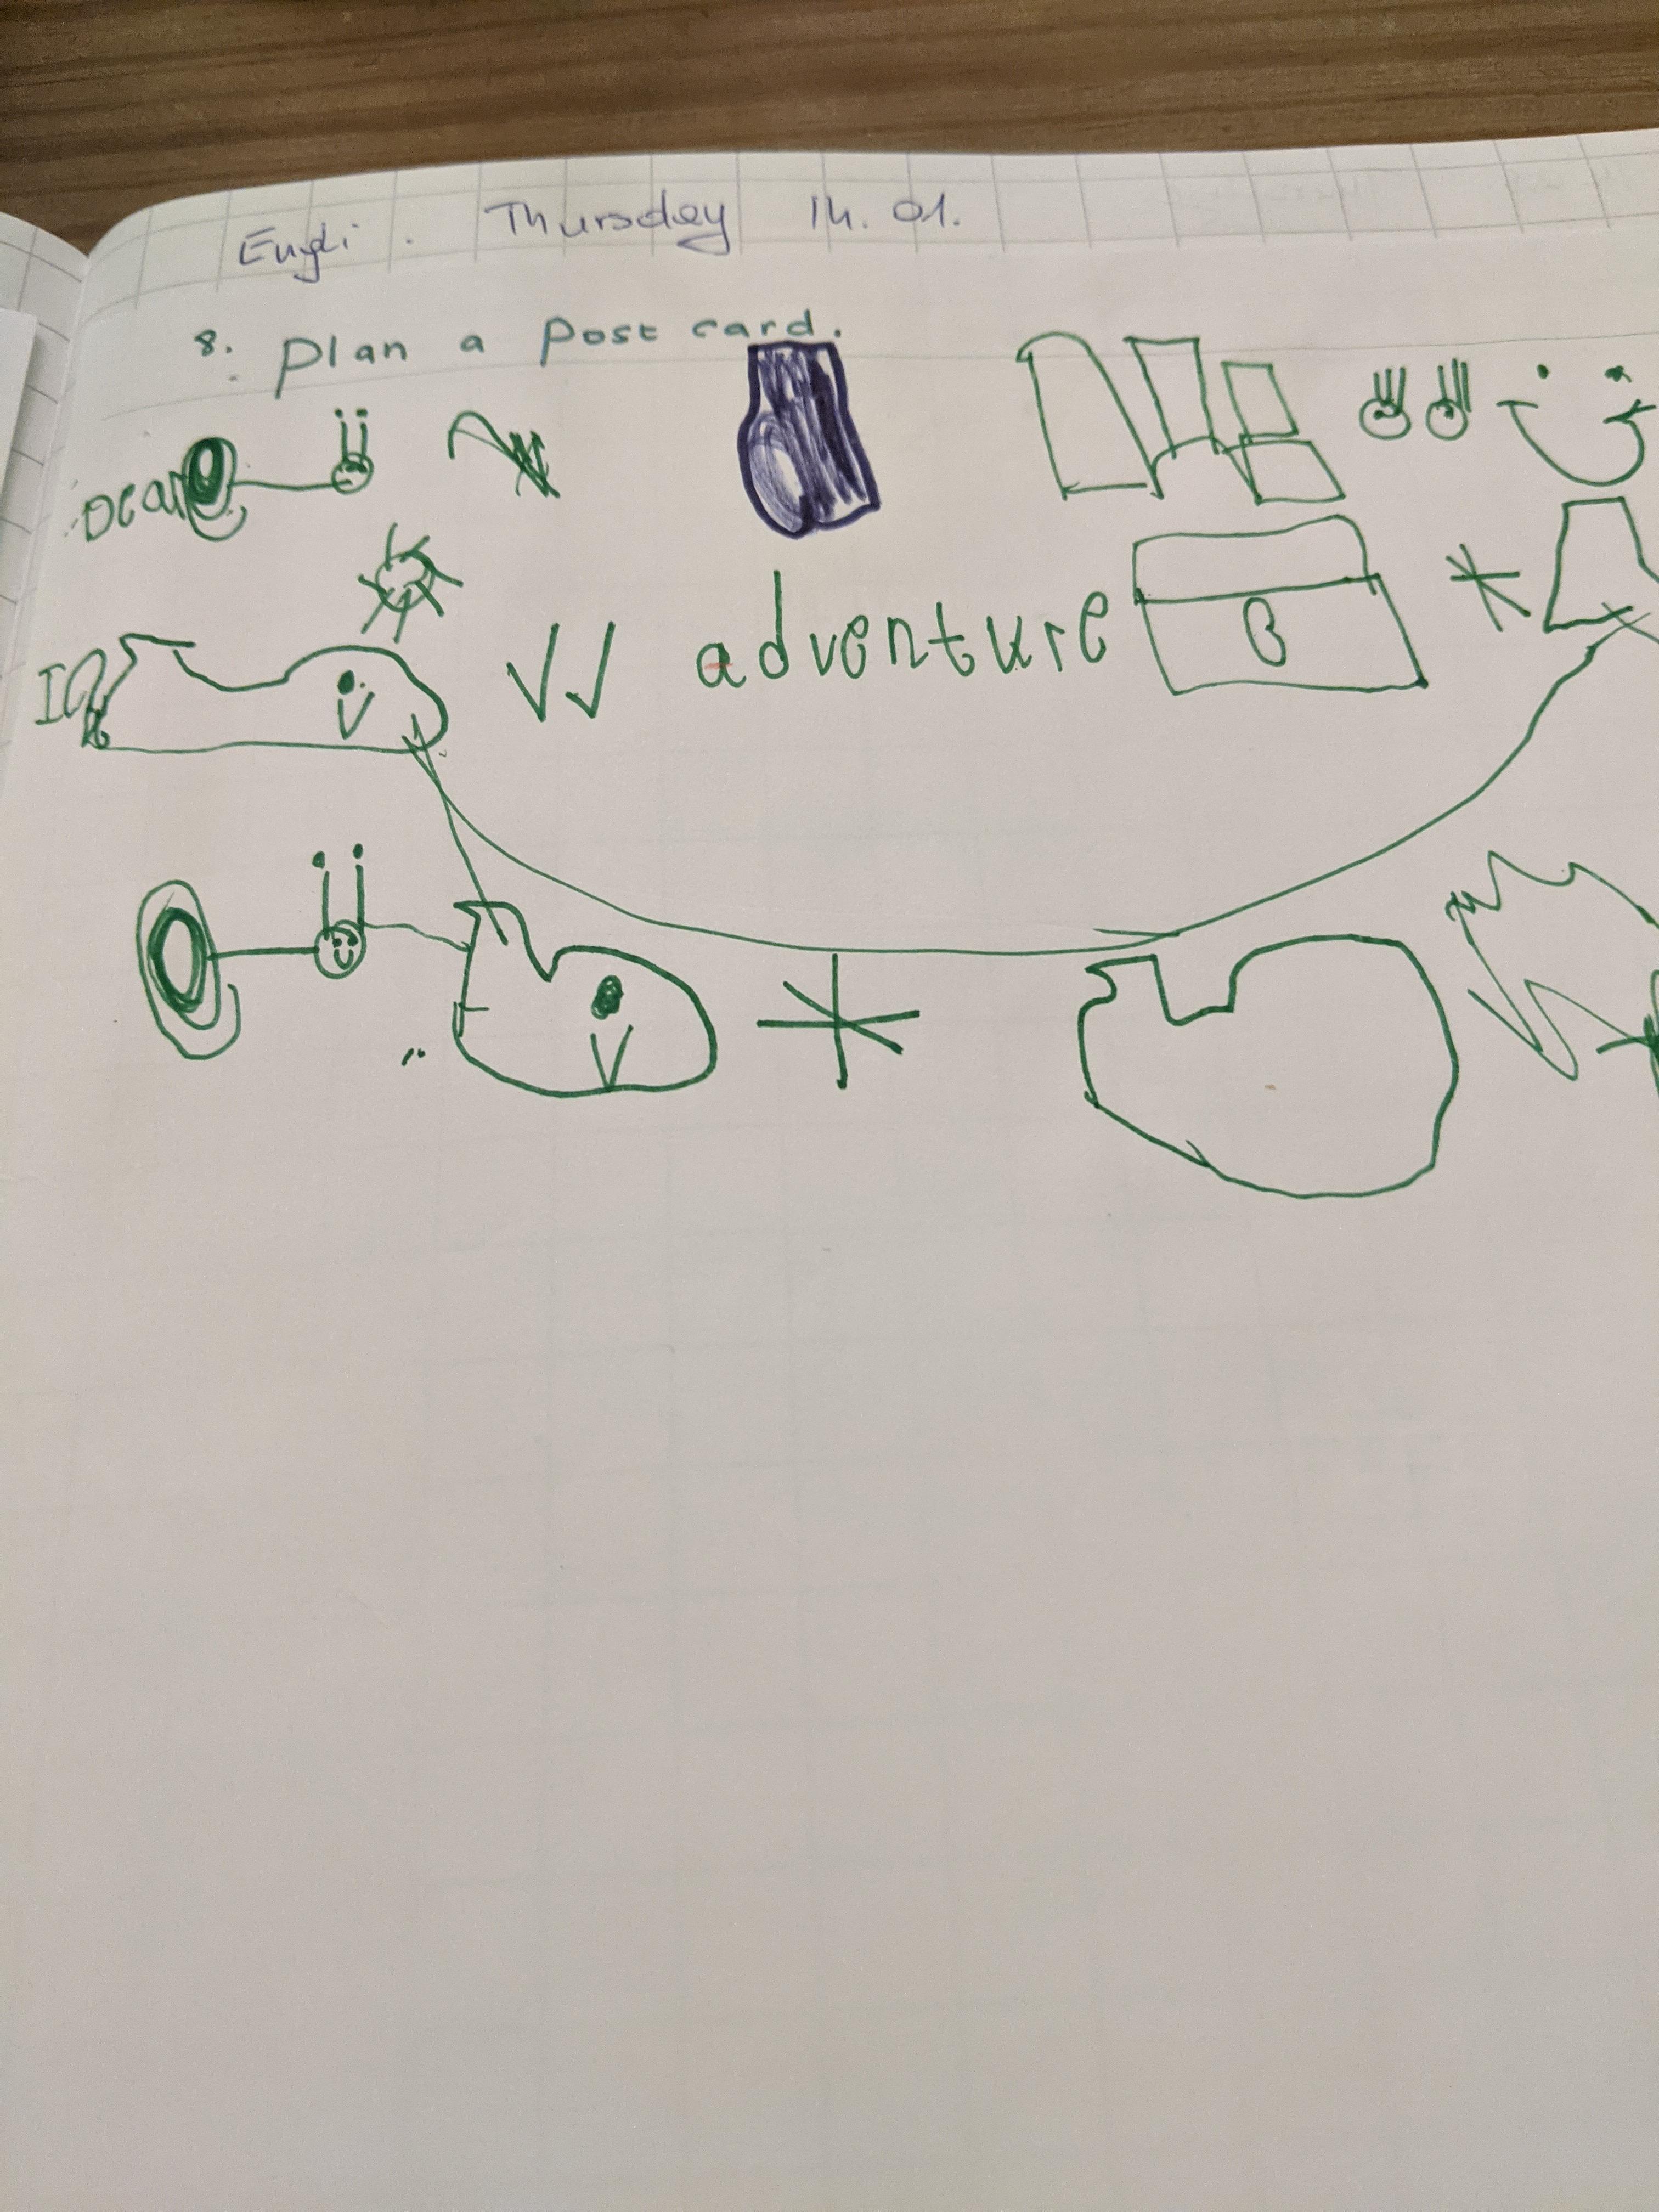 Engli. Thursday 14. 01.
8. plan a post card.
Dear
I
adventure B